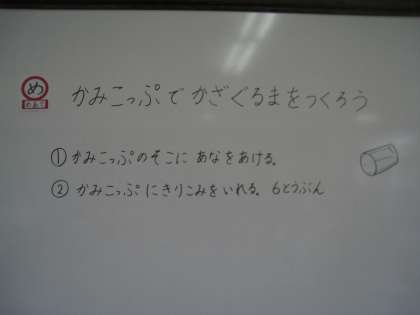 め
めあて
かみこっぷで かざぐるまをつくろう
①かみこっぷのそこに あなをあける。
②かみこっぷにきりこみをいれる。6とうぶん